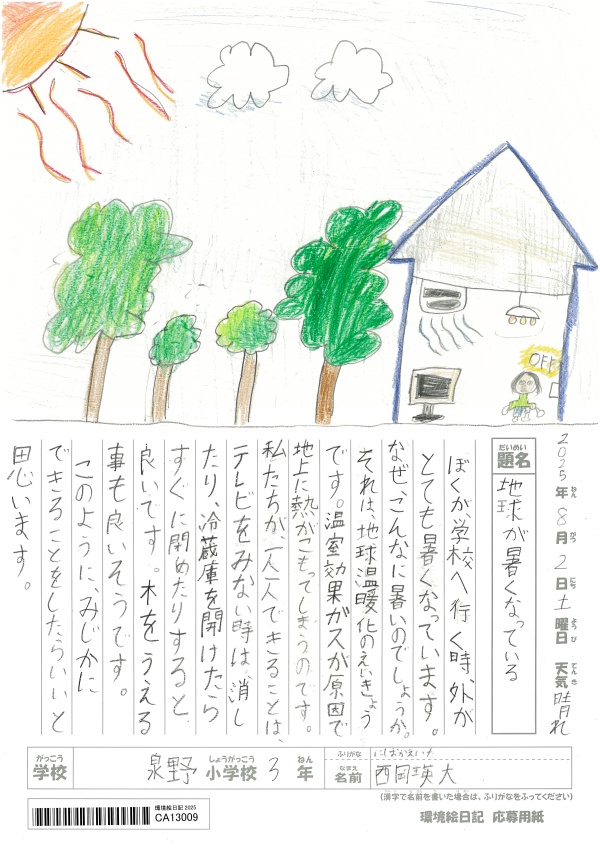 OFF
2025年8月2日土曜日 天気晴れ
ねん がつ にち ようび てんき
だいめい
題名 地球が暑くなっている
ぼくが、学校へ行く時、外が
とても暑くなっています。
なぜ、こんなに暑いのでしょうか。
それは、地球温暖化のえいきょう
です。温室効果ガスが原因で
地上に熱がこもってしまうのです。
私たちが、一人一人できることは、
テレビをみない時は、消し
たり、冷蔵庫を開けたら
すぐに閉めたりすると
良いです。木をうえる
事も良いそうです。
このように、みじかに
できることをしたらいいと
思います。
がっこう しょうがっこう ねん
学校 泉野小学校3年
ふりがな にしおかえいた
なまえ
名前 西岡瑛大
(漢字で名前を書いた場合は、ふりがなをふってください)
環境絵日記 2025
CA13009
環境絵日記 応募用紙